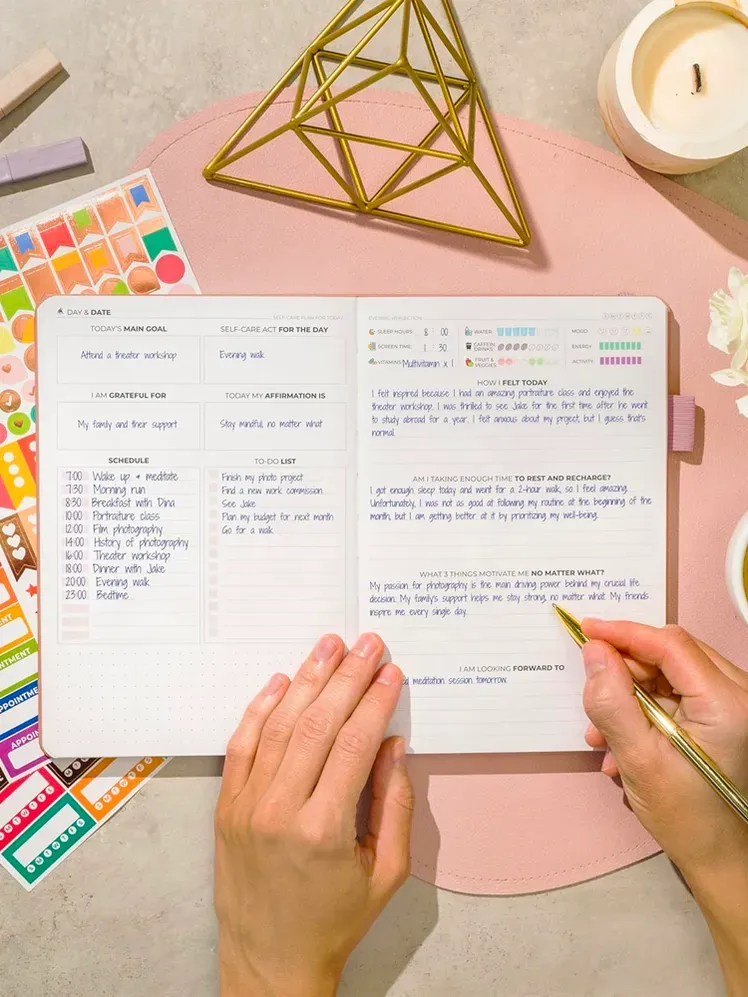 DAY & DATE
SELF-CARE PLAN FOR TODAY
TODAY'S MAIN GOAL
SELF-CARE ACT FOR THE DAY
Attend a theater workshop
Evening walk
I AM GRATEFUL FOR
TODAY MY AFFIRMATION IS
My family and their support
Stay mindful, no matter what
SCHEDULE
7:00 Wake up + meditate
7:30 Morning run
8:30 Breakfast with Dina
10:00 Portrature class
12:00 Film photography
14:00 History of photography
16:00 Theater workshop
18:00 Dinner with Jake
20:00 Evening walk
23:00 Bedtime
TO-DO LIST
Finish my photo project
Find a new work commission
See Jake
Plan my budget for next month
Go for a walk
EVENING REFLECTION
SLEEP HOURS: 8 : 00
WATER:
MOOD:
SCREEN TIME: 1 : 30
CAFFEIN DRINKS:
ENERGY:
VITAMINS: Multivitamin x 1
FRUIT & VEGGIES:
ACTIVITY:
HOW I FELT TODAY
I felt inspired because I had an amazing portrature class and enjoyed the
theater workshop. I was thrilled to see Jake for the first time after he went
to study abroad for a year. I felt anxious about my project, but I guess that's
normal.
AM I TAKING ENOUGH TIME TO REST AND RECHARGE?
I got enough sleep today and went for a 2-hour walk, so I feel amazing.
Unfortunately, I was not as good at following my routine at the beginning of the
month, but I am getting better at it by prioritizing my well-being.
WHAT 3 THINGS MOTIVATE ME NO MATTER WHAT?
My passion for photography is the main driving power behind my crucial life
decision. My family's support helps me stay strong, no matter what. My friends
inspire me every single day.
I AM LOOKING FORWARD TO
meditation session tomorrow.